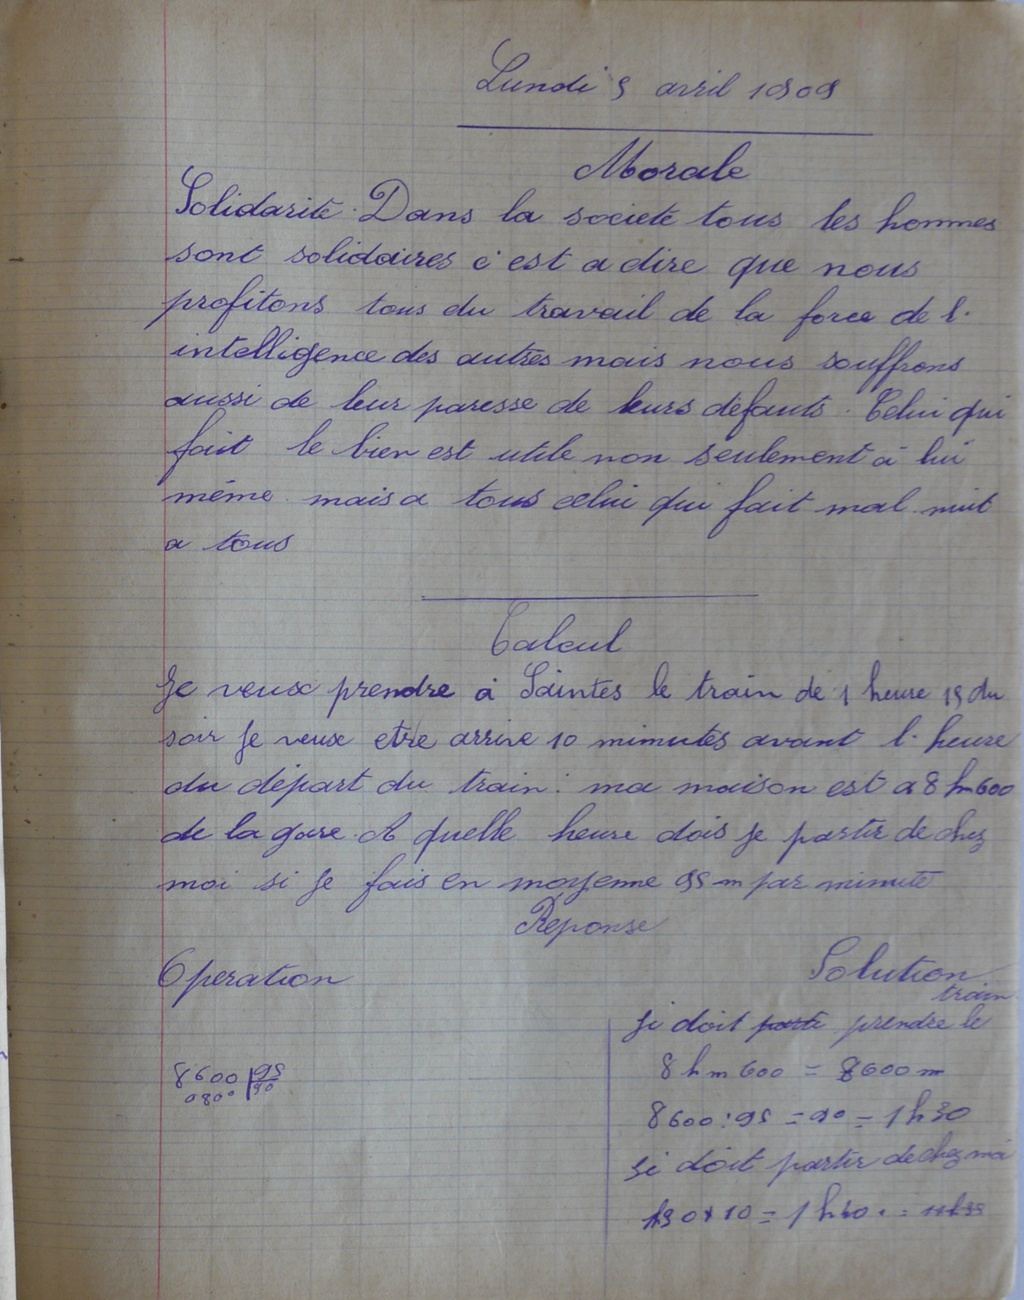 Lundi 5 avril 1909
Morale
Solidarité. Dans la societé tous les hommes
sont solidaires c'est a dire que nous
profitons tous du travail de la force de l'
intelligence des autres mais nous souffrons
aussi de leur paresse de leurs defauts. Celui qui
fait le bien est utile non seulement à lui
même mais a tous celui qui fait mal nuit
a tous
Calcul
Je veux prendre à Saintes le train de 1 heure 15 du
soir je veux etre arrive 10 minutes avant l'heure
du départ du train : ma maison est a 8 hm 600
de la gare. A quelle heure dois je partir de chez
moi si je fais en moyenne 95 m par minute
Reponse
Operation
Solution
train
Ji doit prendre le
8 hm 600 = 8600 m
8600 | 95
0800 | 90
8600 : 95 = 90 = 1 h 30
Ji doit partir de chez moi
h30 + 10 = 1 h 40 =